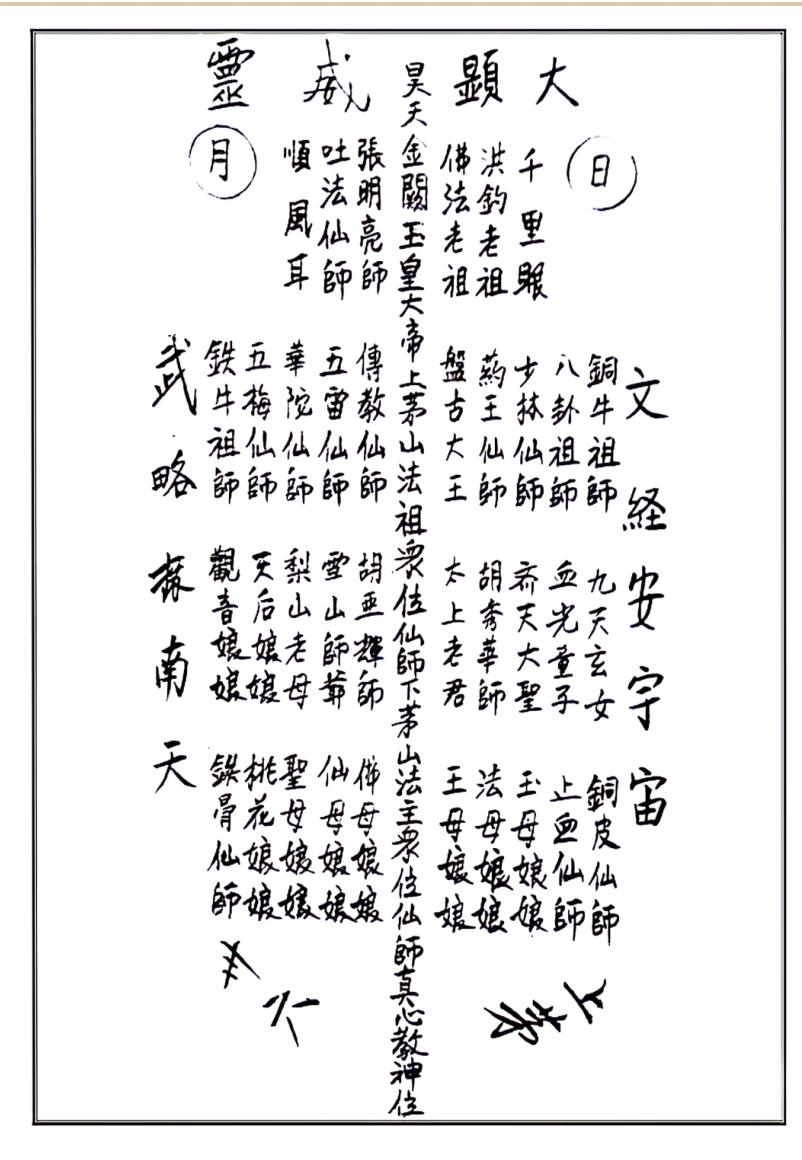 大顯威靈
日
月
文経安宇宙
千里眼
洪鈞老祖
佛法老祖
銅牛祖師
八卦祖師
少林仙師
葯王仙師
盤古大王
九天玄女
血光童子
斉天大聖
胡秀華師
太上老君
銅皮仙師
止血仙師
玉母娘娘
法母娘娘
王母娘娘
昊天金闕玉皇大帝上茅山法祖衆位仙師下茅山法主衆位仙師真心教神位
張明亮師
吐法仙師
順風耳
傳教仙師
五雷仙師
華陀仙師
五梅仙師
鉄牛祖師
胡亜輝師
雪山師爺
梨山老母
天后娘娘
觀音娘娘
佛母娘娘
仙母娘娘
聖母娘娘
桃花娘娘
鉄骨仙師
武略振南天
上茅